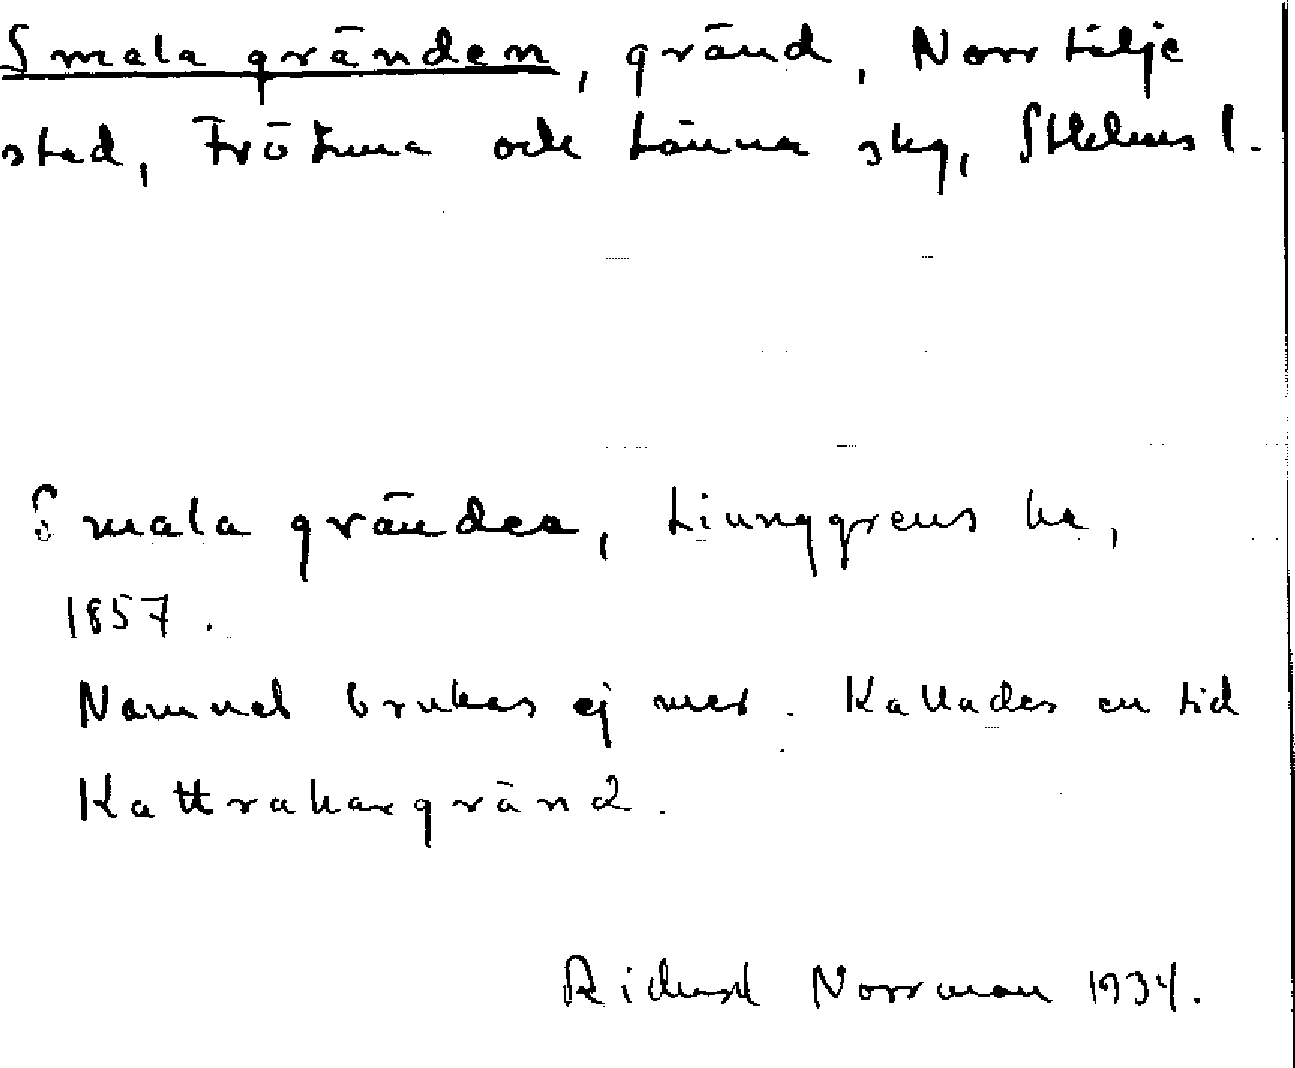 Smala gränden, gränd, Norrtälje
stad, Frötuna och Länna skg, Sthlms l.
Smala gränden, Ljunggrens ka,
1857.
Namnet brukas ej mer. Kallades en tid
Kattrakargränd.
Richard Norrman 1934.